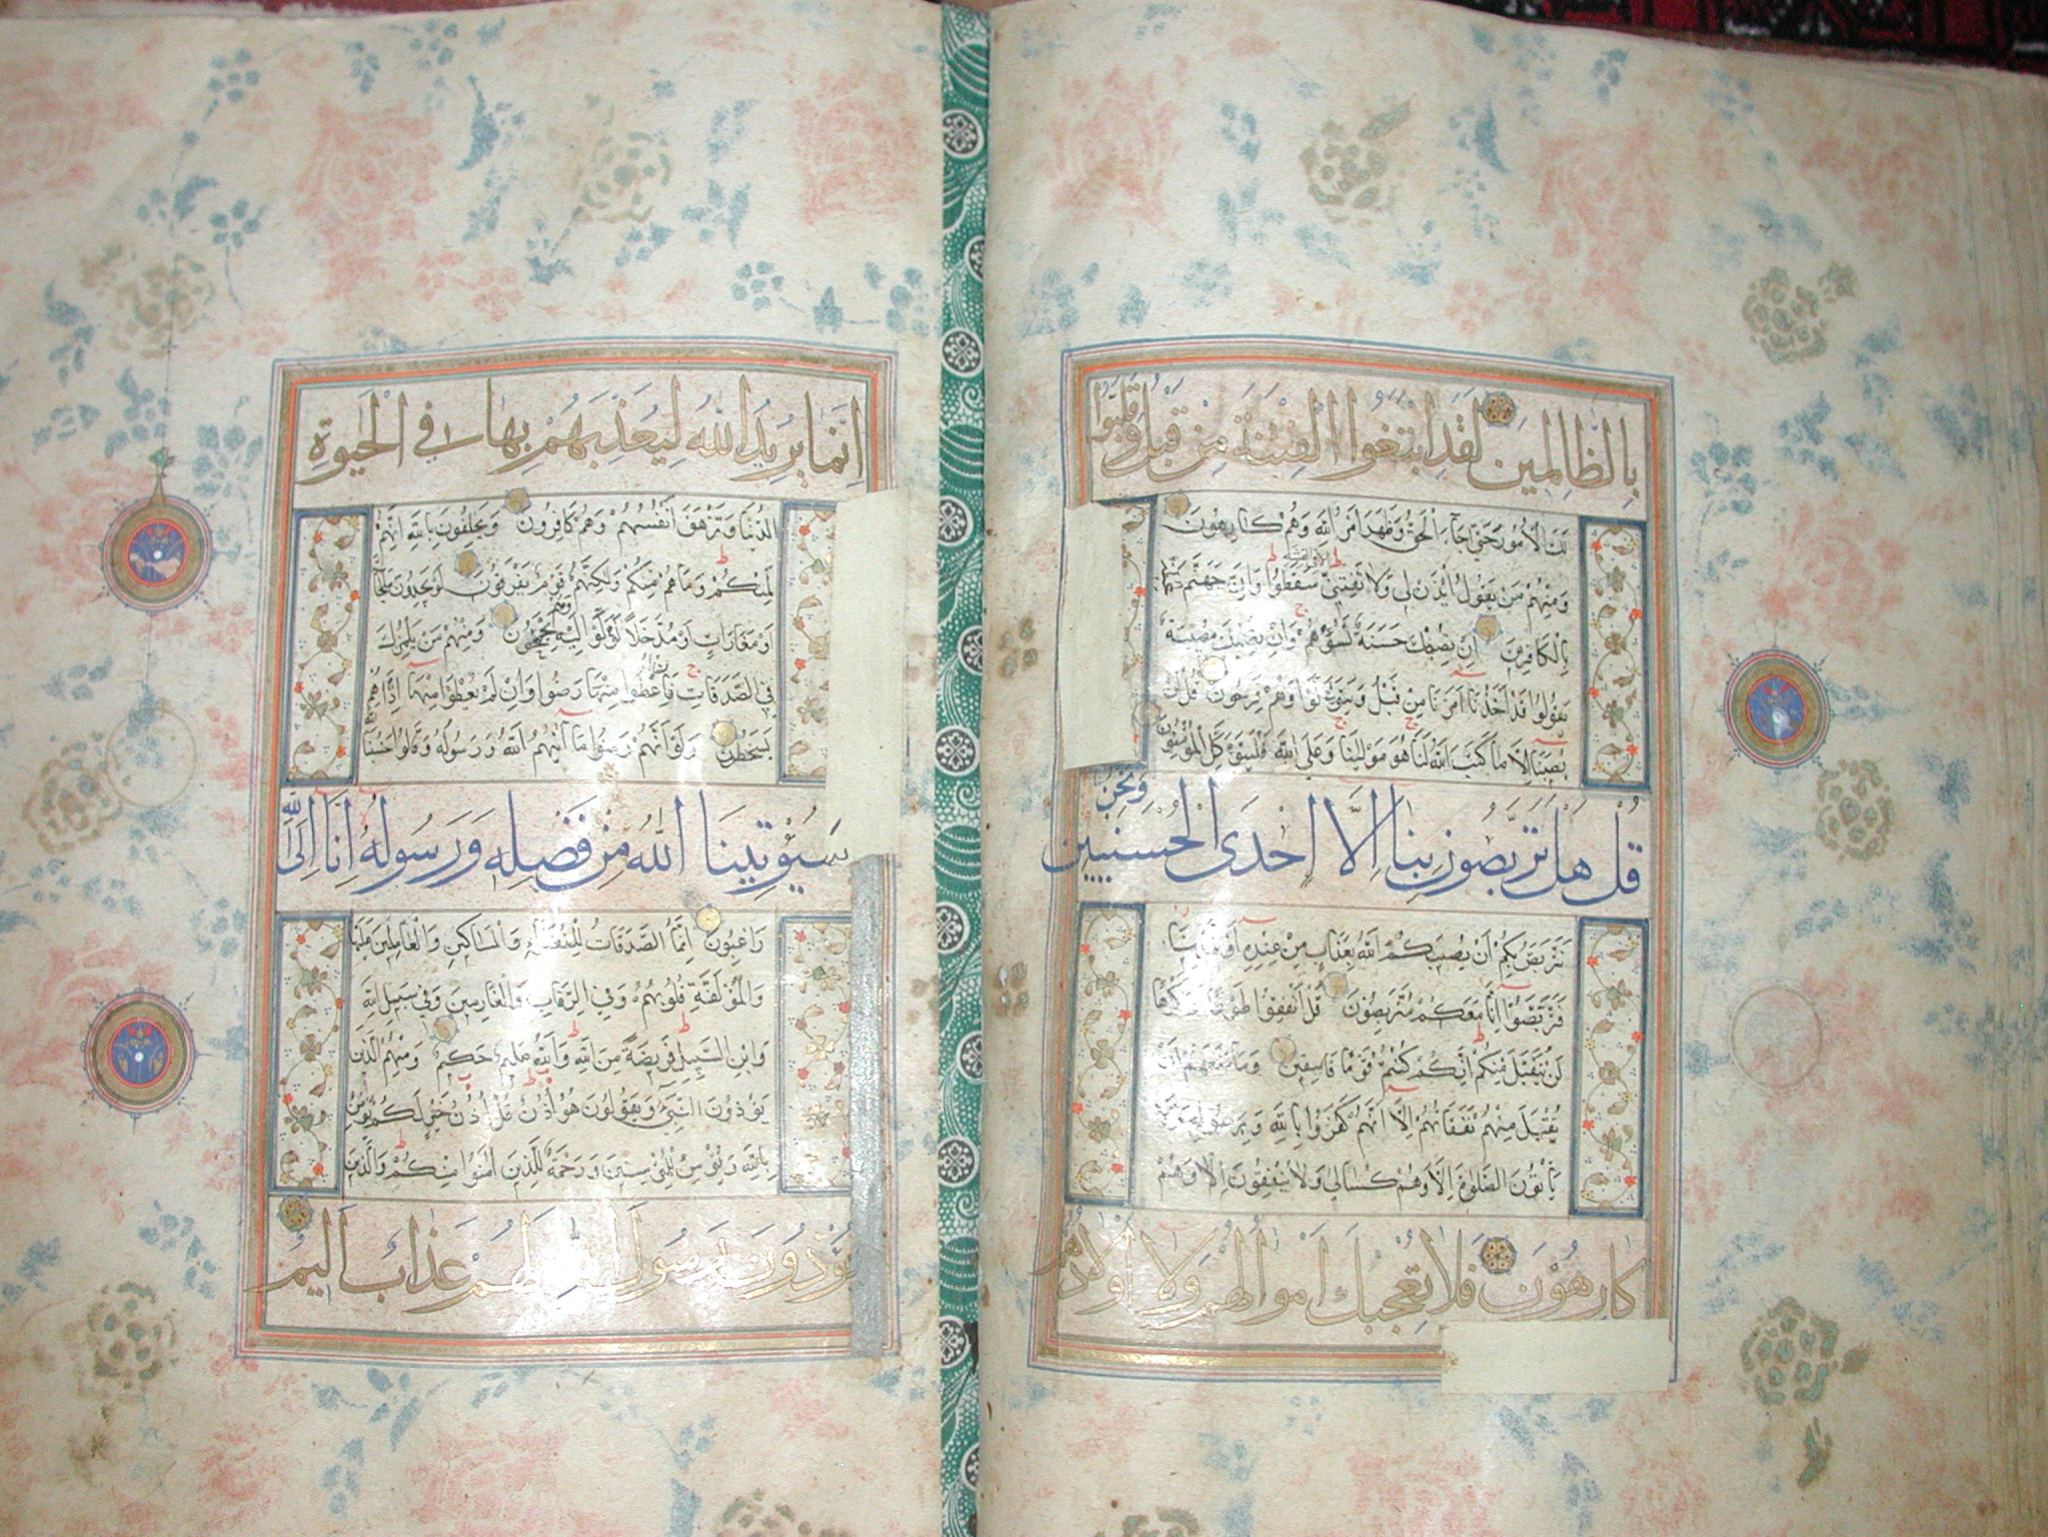 بِالظَّالِمِينَ لَقَدِ ابْتَغَوُا الْفِتْنَةَ مِنْ قَبْلُ وَقَلَّبُوا
لَكَ الْأُمُورَ حَتَّى جَاءَ الْحَقُّ وَظَهَرَ أَمْرُ اللَّهِ وَهُمْ كَارِهُونَ
وَمِنْهُمْ مَنْ يَقُولُ ائْذَنْ لِي وَلَا تَفْتِنِّي أَلَا فِي الْفِتْنَةِ سَقَطُوا وَإِنَّ جَهَنَّمَ
بِالْكَافِرِينَ إِنْ تُصِبْكَ حَسَنَةٌ تَسُؤْهُمْ وَإِنْ تُصِبْكَ مُصِيبَةٌ
يَقُولُوا قَدْ أَخَذْنَا أَمْرَنَا مِنْ قَبْلُ وَيَتَوَلَّوْا وَهُمْ فَرِحُونَ قُلْ لَنْ
يُصِيبَنَا إِلَّا مَا كَتَبَ اللَّهُ لَنَا هُوَ مَوْلَيٰنَا وَعَلَى اللَّهِ فَلْيَتَوَكَّلِ الْمُؤْمِنُونَ
قُلْ هَلْ تَرَبَّصُونَ بِنَا إِلَّا إِحْدَى الْحُسْنَيَيْنِ وَنَحْنُ
نَتَرَبَّصُ بِكُمْ أَنْ يُصِيبَكُمُ اللَّهُ بِعَذَابٍ مِنْ عِنْدِهِ أَوْ بِأَيْدِينَا
فَتَرَبَّصُوا إِنَّا مَعَكُمْ مُتَرَبِّصُونَ قُلْ أَنْفِقُوا طَوْعًا أَوْ كَرْهًا
لَنْ يُتَقَبَّلَ مِنْكُمْ إِنَّكُمْ كُنْتُمْ قَوْمًا فَاسِقِينَ وَمَا مَنَعَهُمْ أَنْ
تُقْبَلَ مِنْهُمْ نَفَقَاتُهُمْ إِلَّا أَنَّهُمْ كَفَرُوا بِاللَّهِ وَبِرَسُولِهِ وَلَا
يَأْتُونَ الصَّلَوٰةَ إِلَّا وَهُمْ كُسَالَى وَلَا يُنْفِقُونَ إِلَّا وَهُمْ
كَارِهُونَ فَلَا تُعْجِبْكَ أَمْوَالُهُمْ وَلَا أَوْلَادُهُمْ
إِنَّمَا يُرِيدُ اللَّهُ لِيُعَذِّبَهُمْ بِهَا فِي الْحَيَوٰةِ
الدُّنْيَا وَتَزْهَقَ أَنْفُسُهُمْ وَهُمْ كَافِرُونَ وَيَحْلِفُونَ بِاللَّهِ إِنَّهُمْ
لَمِنْكُمْ وَمَا هُمْ مِنْكُمْ وَلَكِنَّهُمْ قَوْمٌ يَفْرَقُونَ لَوْ يَجِدُونَ مَلْجَأً
أَوْ مَغَارَاتٍ أَوْ مُدَّخَلًا لَوَلَّوْا إِلَيْهِ وَهُمْ يَجْمَحُونَ وَمِنْهُمْ مَنْ يَلْمِزُكَ
فِي الصَّدَقَاتِ فَإِنْ أُعْطُوا مِنْهَا رَضُوا وَإِنْ لَمْ يُعْطَوْا مِنْهَا إِذَا هُمْ
يَسْخَطُونَ وَلَوْ أَنَّهُمْ رَضُوا مَا آتَيٰهُمُ اللَّهُ وَرَسُولُهُ وَقَالُوا حَسْبُنَا
سَيُؤْتِينَا اللَّهُ مِنْ فَضْلِهِ وَرَسُولُهُ إِنَّا إِلَى اللَّهِ
رَاغِبُونَ إِنَّمَا الصَّدَقَاتُ لِلْفُقَرَاءِ وَالْمَسَاكِينِ وَالْعَامِلِينَ عَلَيْهَا
وَالْمُؤَلَّفَةِ قُلُوبُهُمْ وَفِي الرِّقَابِ وَالْغَارِمِينَ وَفِي سَبِيلِ اللَّهِ
وَابْنِ السَّبِيلِ فَرِيضَةً مِنَ اللَّهِ وَاللَّهُ عَلِيمٌ حَكِيمٌ وَمِنْهُمُ الَّذِينَ
يُؤْذُونَ النَّبِيَّ وَيَقُولُونَ هُوَ أُذُنٌ قُلْ أُذُنُ خَيْرٍ لَكُمْ يُؤْمِنُ
بِاللَّهِ وَيُؤْمِنُ لِلْمُؤْمِنِينَ وَرَحْمَةٌ لِلَّذِينَ آمَنُوا مِنْكُمْ وَالَّذِينَ
يُؤْذُونَ رَسُولَ اللَّهِ لَهُمْ عَذَابٌ أَلِيمٌ